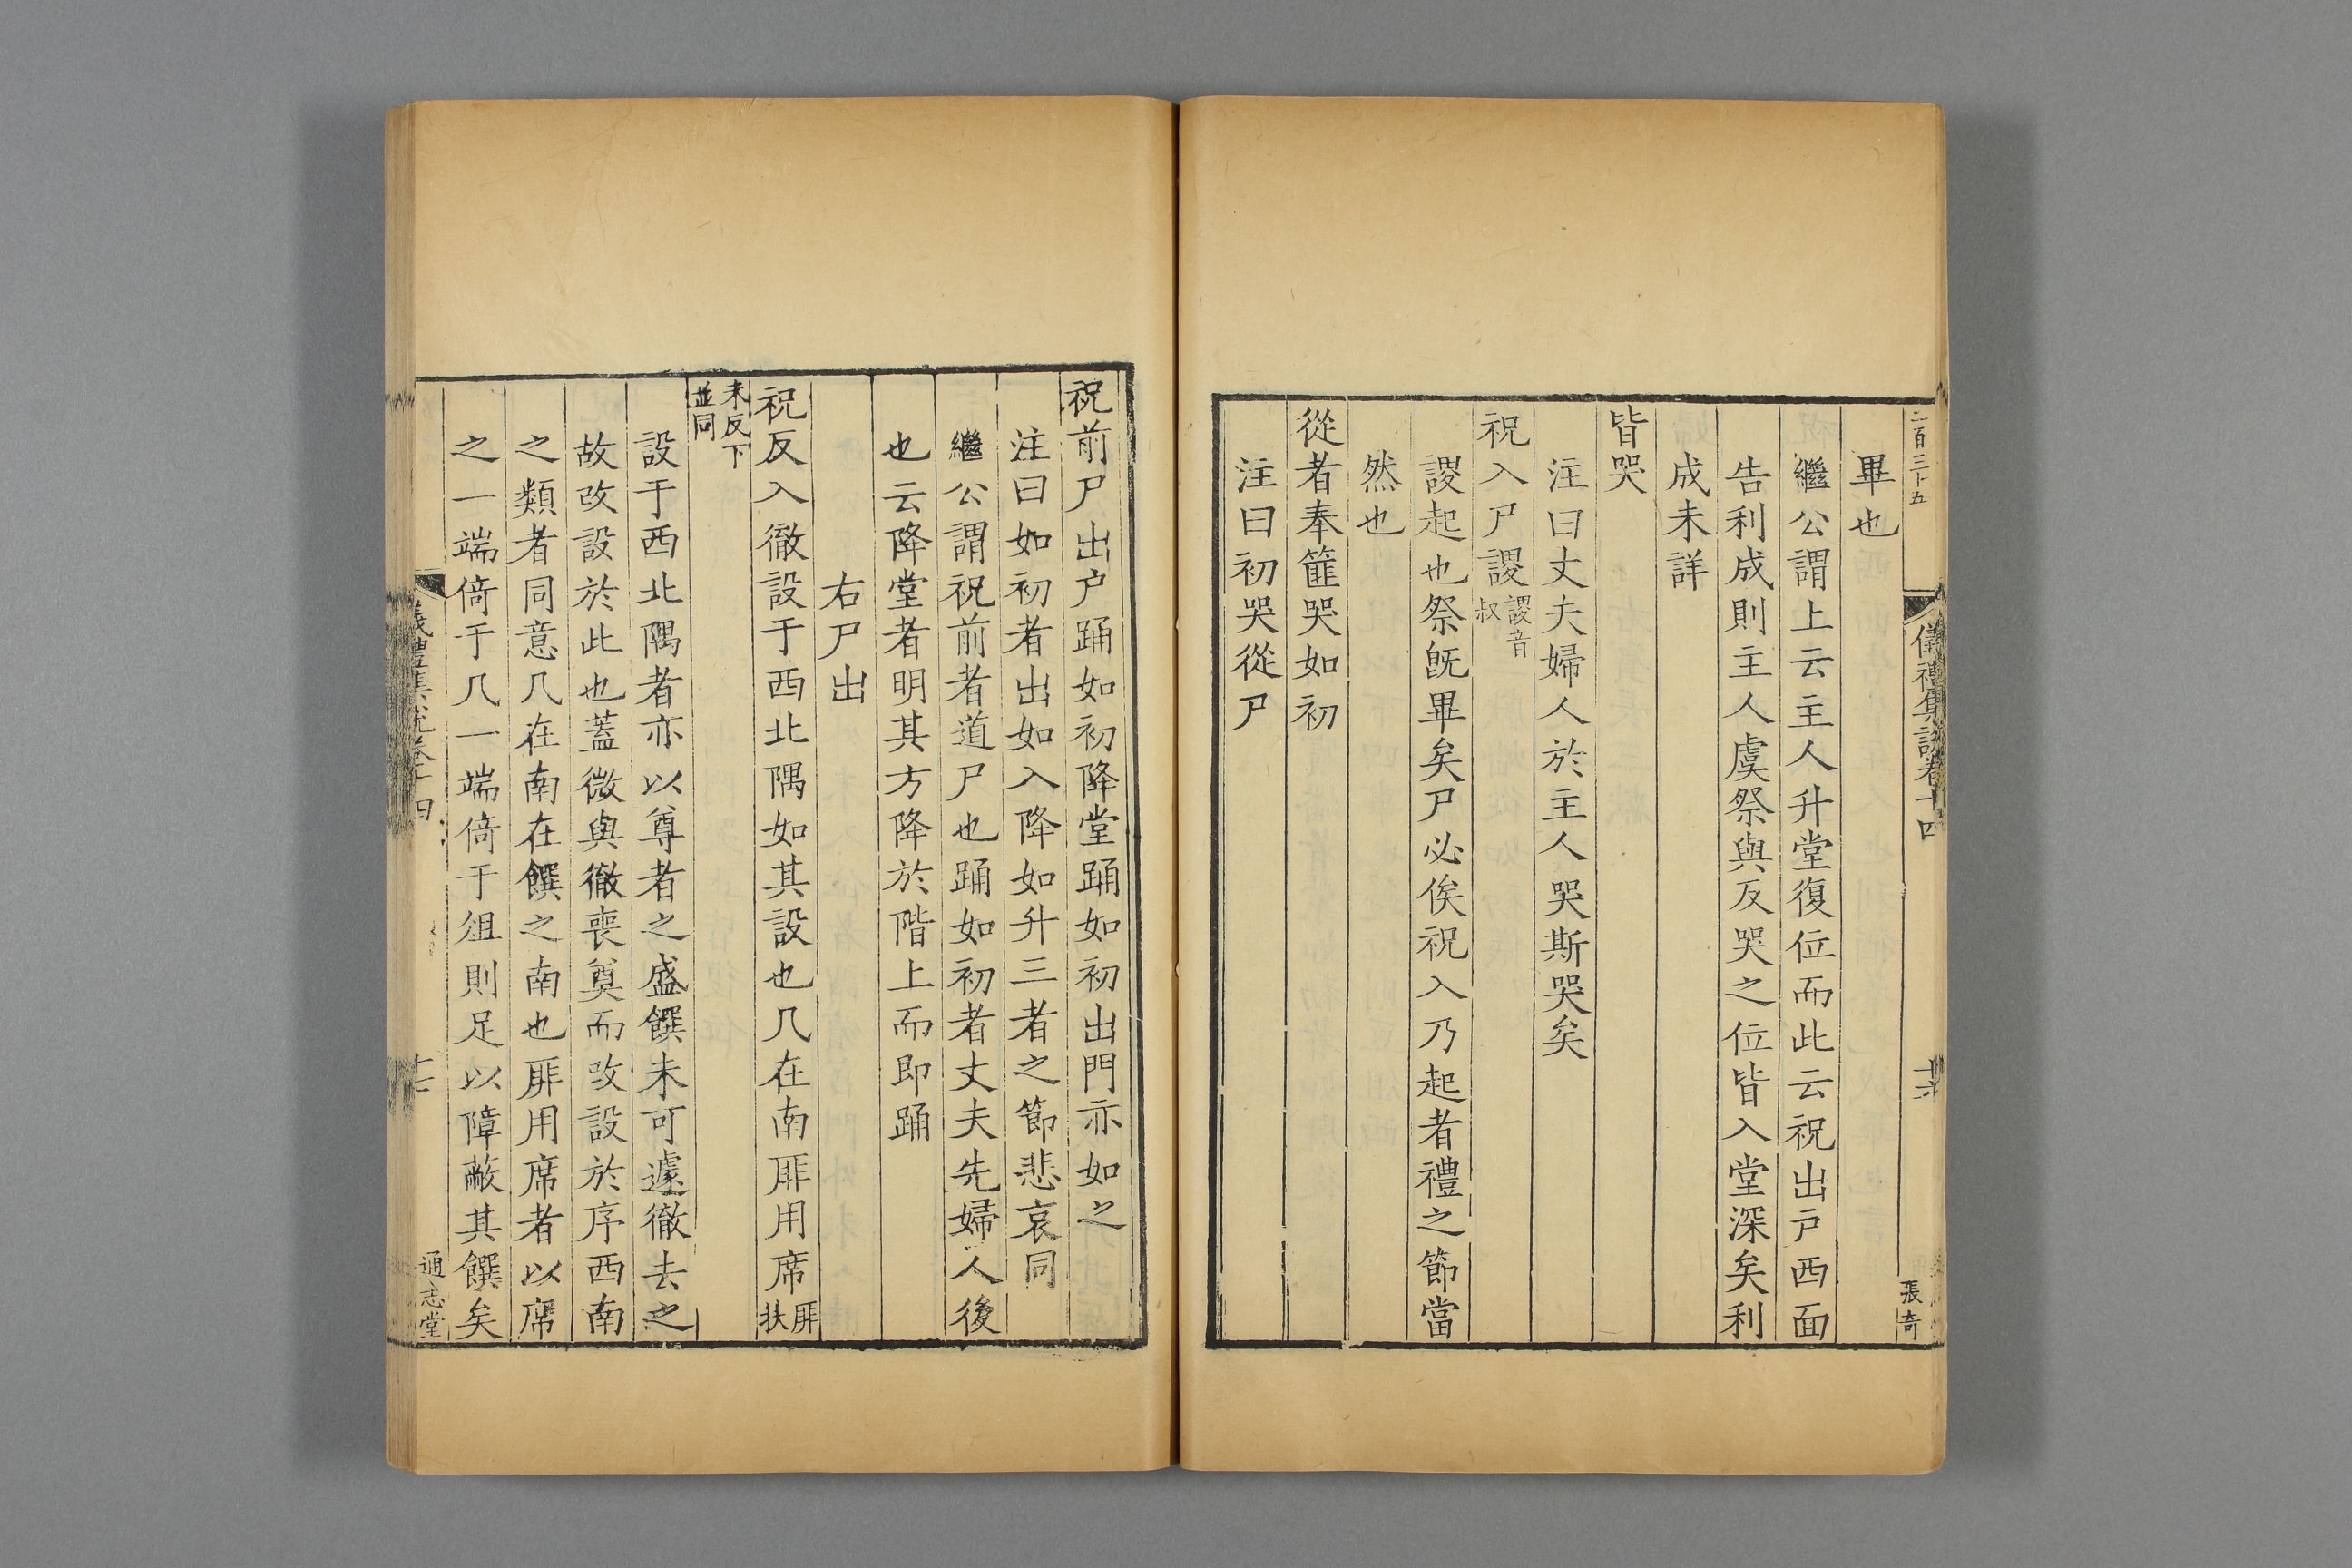 二百三十五
儀禮集說卷十四
十六
張奇
畢也
繼公謂上云主人升堂復位而此云祝出戶西面
告利成則主人虞祭與反哭之位皆入堂深矣利
成未詳
皆哭
注曰丈夫婦人於主人哭斯哭矣
祝入尸謖謖音叔
謖起也祭旣畢矣尸必俟祝入乃起者禮之節當
然也
從者奉篚哭如初
注曰初哭從尸
祝前尸出户踊如初降堂踊如初出門亦如之
注曰如初者出如入降如升三者之節悲哀同
繼公謂祝前者道尸也踊如初者丈夫先婦人後
也云降堂者明其方降於階上而即踊
右尸出
祝反入徹設于西北隅如其設也几在南厞用席厞扶
未反下並同
設于西北隅者亦以尊者之盛饌未可遽徹去之
故改設於此也蓋微與徹喪奠而改設於序西南
之類者同意几在南在饌之南也厞用席者以席
之一端倚于几一端倚于俎則足以障蔽其饌矣
儀禮集說卷十四
十七
通志堂